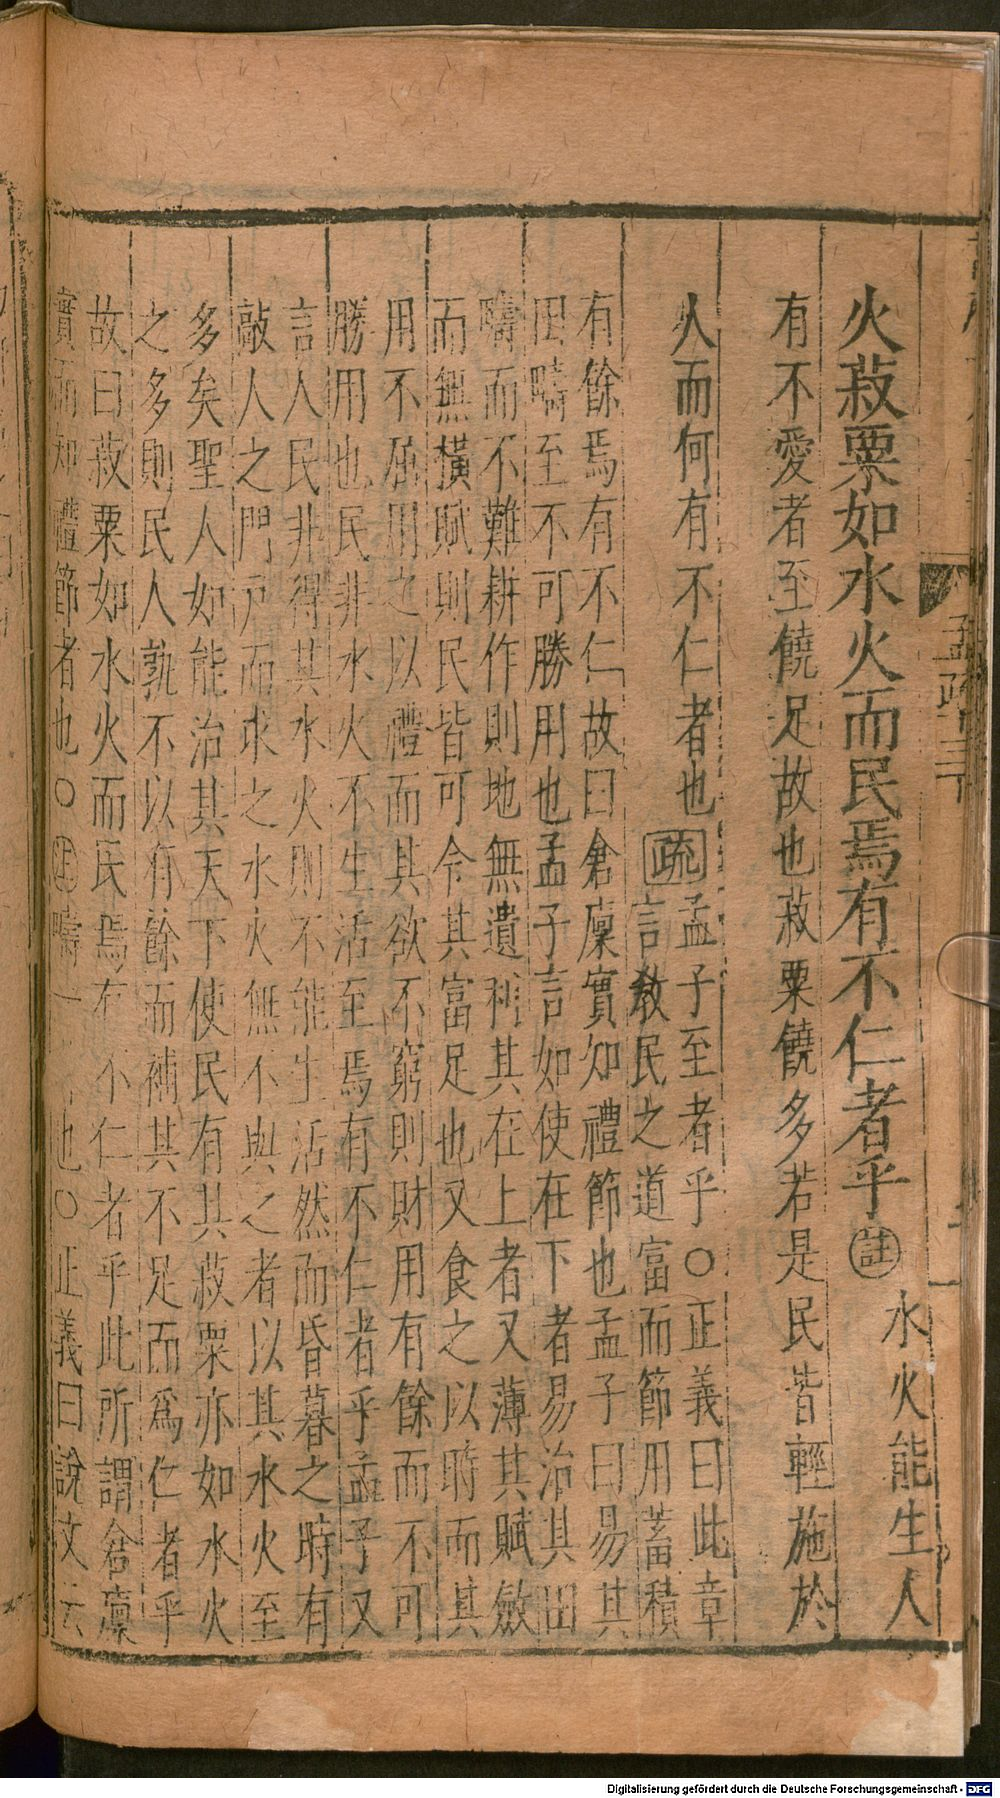 火菽粟如水火而民焉有不仁者乎註水火能生人
有不愛者至饒足故也菽粟饒多若是民皆輕施於
人而何有不仁者也疏孟子至者乎○正義曰此章
言教民之道富而節用蓄積
有餘焉有不仁故曰倉廩實知禮節也孟子曰易其
田疇至不可勝用也孟子言如使在下者易治其田
疇而不難耕作則地無遺利其在上者又薄其賦斂
而無橫賦則民皆可令其富足也又食之以時而其
用不屈用之以禮而其欲不窮則財用有餘而不可
勝用也民非水火不生活至焉有不仁者乎孟子又
言人民非得其水火則不能生活然而昏暮之時有
敲人之門戶而求之水火無不與之者以其水火至
多矣聖人如能治其天下使民有其菽粟亦如水火
之多則民人孰不以有餘而補其不足而爲仁者乎
故曰菽粟如水火而民焉有不仁者乎此所謂倉廩
實而知禮節者也○註疇一也○正義曰說文云
孟疏十三下
Digitalisierung gefördert durch die Deutsche Forschungsgemeinschaft - DFG